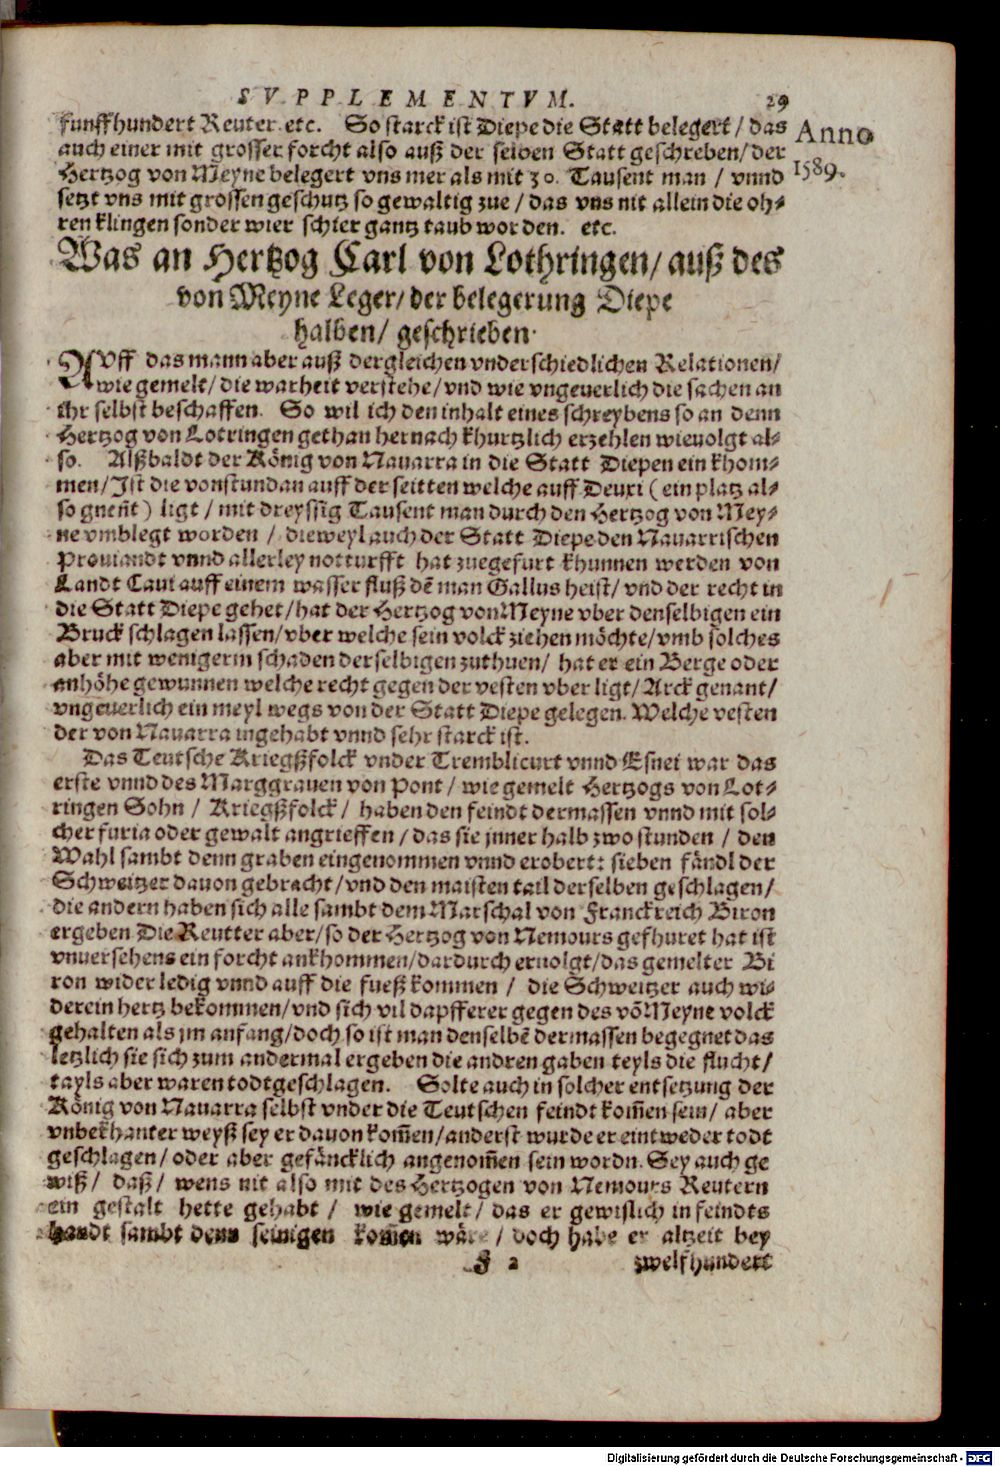 SVPPLEMENTVM. 29
funffhundert Reuter etc. So starck ist Diepe die Statt belegert / das
auch einer mit grosser forcht also auß der selben Statt geschreben / der
Hertzog von Meyne belegert vns mer als mit 30. Tausent man / vnnd
setzt vns mit grossen geschutz so gewaltig zue / das vns nit allein die oh-
ren klingen sonder wier schier gantz taub worden. etc.
Anno
1589.
Was an Hertzog Carl von Lothringen / auß des
von Meyne Leger / der belegerung Diepe
halben / geschrieben.
AVff das mann aber auß dergleichen vnderschiedlichen Relationen /
wie gemelt / die warheit verstehe / vnd wie vngeuerlich die sachen an
ihr selbst beschaffen. So wil ich den inhalt eines schreybens so an denn
Hertzog von Lotringen gethan hernach khurtzlich erzehlen wieuolgt al-
so. Alßbaldt der König von Nauarra in die Statt Diepen ein khom-
men / Ist die vonstundan auff der seitten welche auff Deuxi ( ein platz al-
so gneñt ) ligt / mit dreyssig Tausent man durch den Hertzog von Mey-
ne vmblegt worden / dieweyl auch der Statt Diepe den Nauarrischen
Prouiandt vnnd allerley notturfft hat zuegefurt khunnen werden von
Landt Caui auff einem wasser fluß dẽ man Gallus heist / vnd der recht in
die Statt Diepe gehet / hat der Hertzog von Meyne vber denselbigen ein
Bruck schlagen lassen / vber welche sein volck ziehen möchte / vmb solches
aber mit wenigerm schaden derselbigen zuthuen / hat er ein Berge oder
anhöhe gewunnen welche recht gegen der vesten vber ligt / Arck genant /
vngeuerlich ein meyl wegs von der Statt Diepe gelegen. Welche vesten
der von Nauarra ingehabt vnnd sehr starck ist.
Das Teutsche Kriegßfolck vnder Tremblicurt vnnd Esnei war das
erste vnnd des Marggrauen von Pont / wie gemelt Hertzogs von Lot-
ringen Sohn / Kriegßfolck / haben den feindt dermassen vnnd mit sol-
cher furia oder gewalt angrieffen / das sie jnner halb zwo stunden / den
Wahl sambt denn graben eingenommen vnnd erobert: sieben fändl der
Schweitzer dauon gebracht / vnd den maisten tail derselben geschlagen /
die andern haben sich alle sambt dem Marschal von Franckreich Biron
ergeben Die Reutter aber / so der Hertzog von Nemours gefhuret hat ist
vnuersehens ein forcht ankhommen / dardurch eruolgt / das gemelter Bi
ron wider ledig vnnd auff die fueß kommen / die Schweitzer auch wi-
derein hertz bekommen / vnd sich vil dapfferer gegen des võ Meyne volck
gehalten als jm anfang / doch so ist man denselbẽ dermassen begegnet das
letzlich sie sich zum andermal ergeben die andren gaben teyls die flucht /
tayls aber waren todtgeschlagen. Solte auch in solcher entsetzung der
König von Nauarra selbst vnder die Teutschen feindt kom̃en sein / aber
vnbekhanter weyß sey er dauon kom̃en / anderst wurde er eintweder todt
geschlagen / oder aber gefäncklich angenom̃en sein wordn. Sey auch ge
wiß / daß / wens nit also mit des Hertzogen von Nemours Reutern
ein gestalt hette gehabt / wie gemelt / das er gewislich in feindts
handt sambt denn seinigen kom̃en wäre / doch habe er altzeit bey
F 2 zwelfhundert
Digitalisierung gefördert durch die Deutsche Forschungsgemeinschaft - DFG